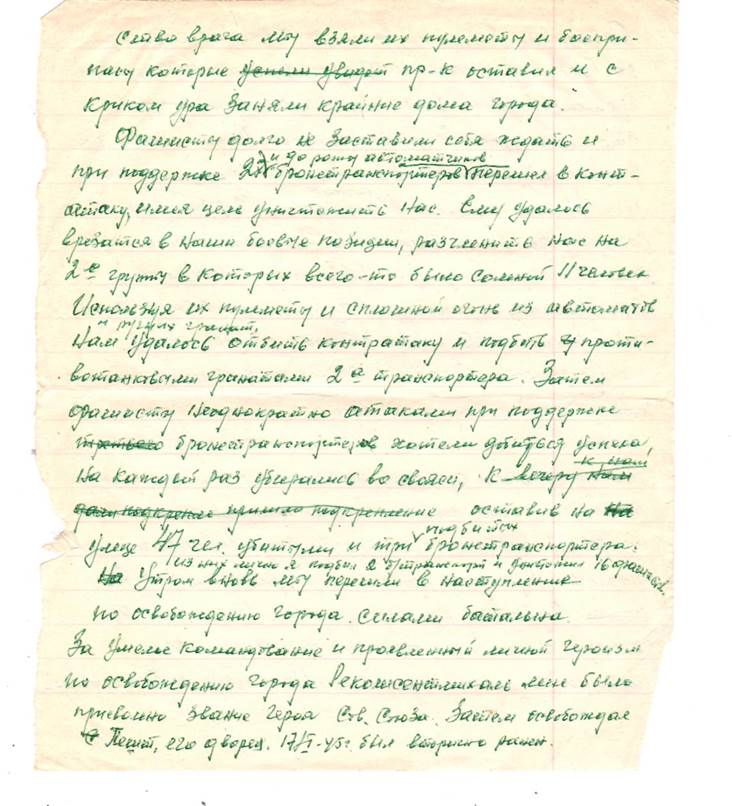 ство врага мы взяли их пулеметы и боепри-
пасы которые успели увидет пр-к оставил и с
криком ура заняли крайние дома города.
Фашисты долго не заставили себя ждать и
и до роты автоматчиков
при поддержке 2х бронетранспортеров перешел в конт-
атаку, имея цель уничтожить нас. Ему удалось
врезатся в наши боевые позиции, разчленить нас на
2е группы в которых всего-то было со мной 11 человек
Используя их пулеметы и сплошной огонь из автоматов
и ручных гранат,
нам удалось отбить контратаку и подбить проти-
востанковыми гранатами 2а транспортера. Затем
фашисты неоднократно атаками при поддержке
бронетранспортеров хотели добиться успеха,
к нам
На каждый раз убирались во свояси, к вечеру нам
дали подкрепле пришло подкрепление оставив на на
подбитых
улице 47 чел. убитыми и три бронетранспортера.
из них лично я подбил 2 б/транспорт и уничтожил 16 фашистов.
На Утром вновь мы перешли в наступление
по освобождению города силами батальна.
За умелое командование и проявленный личной героизм
по освобождению города Рекошентмихаль мне было
присвоено звание Героя Сов. Союза. Затем освобождал
Пешт, его дворец. 17/I-45г. был вторично ранен.